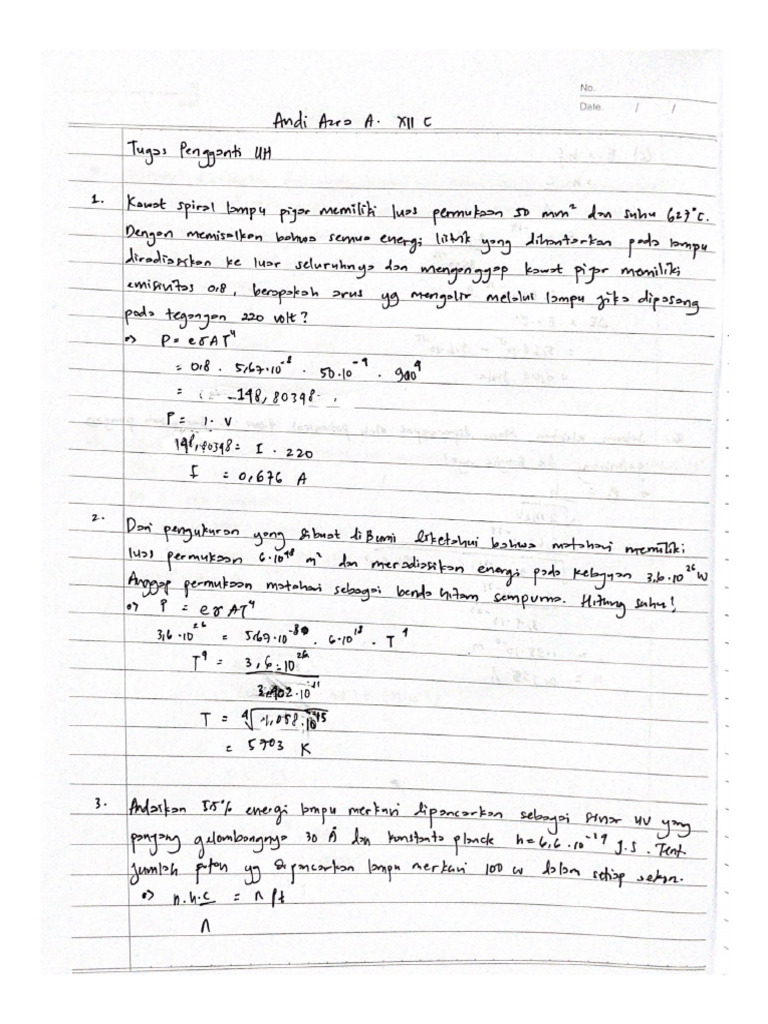 No.
Date. / /
Andi Azra A. XII C
Tugas Pengganti UH
1. Kawat spiral lampu pijar memiliki luas permukaan 50 mm² dan suhu 627°C.
Dengan memisalkan bahwa semua energi listrik yang dihantarkan pada lampu
diradiasikan ke luar seluruhnya dan menganggap kawat pijar memiliki
emisivitas 0,8, berapakah arus yg mengalir melalui lampu jika dipasang
pada tegangan 220 volt?
=> P = eσAT⁴
= 0,8 · 5,67·10⁻⁸ · 50·10⁻⁹ · 900⁴
= 148,80348
P = I · V
148,80348 = I · 220
I = 0,676 A
2. Dari pengukuran yang dibuat di Bumi diketahui bahwa matahari memiliki
luas permukaan 6·10¹⁸ m² dan meradiasikan energi pada kelajuan 3,6·10²⁶ W
Anggap permukaan matahari sebagai benda hitam sempurna. Hitung suhu!
=> P = eσAT⁴
3,6·10²⁶ = 5,67·10⁻⁸ · 6·10¹⁸ · T⁴
T⁴ = 3,6·10²⁶
3,402·10¹¹
T = ⁴√1,058·10¹⁵
= 5703 K
3. Andaikan 55% energi lampu merkuri dipancarkan sebagai sinar UV yang
panjang gelombangnya 30 Å dan konstanta planck h = 6,6·10⁻³⁴ J.S. Tent.
jumlah foton yg dipancarkan lampu merkuri 100 W dalam setiap sekon.
=> n.h.c = η Pt
λ